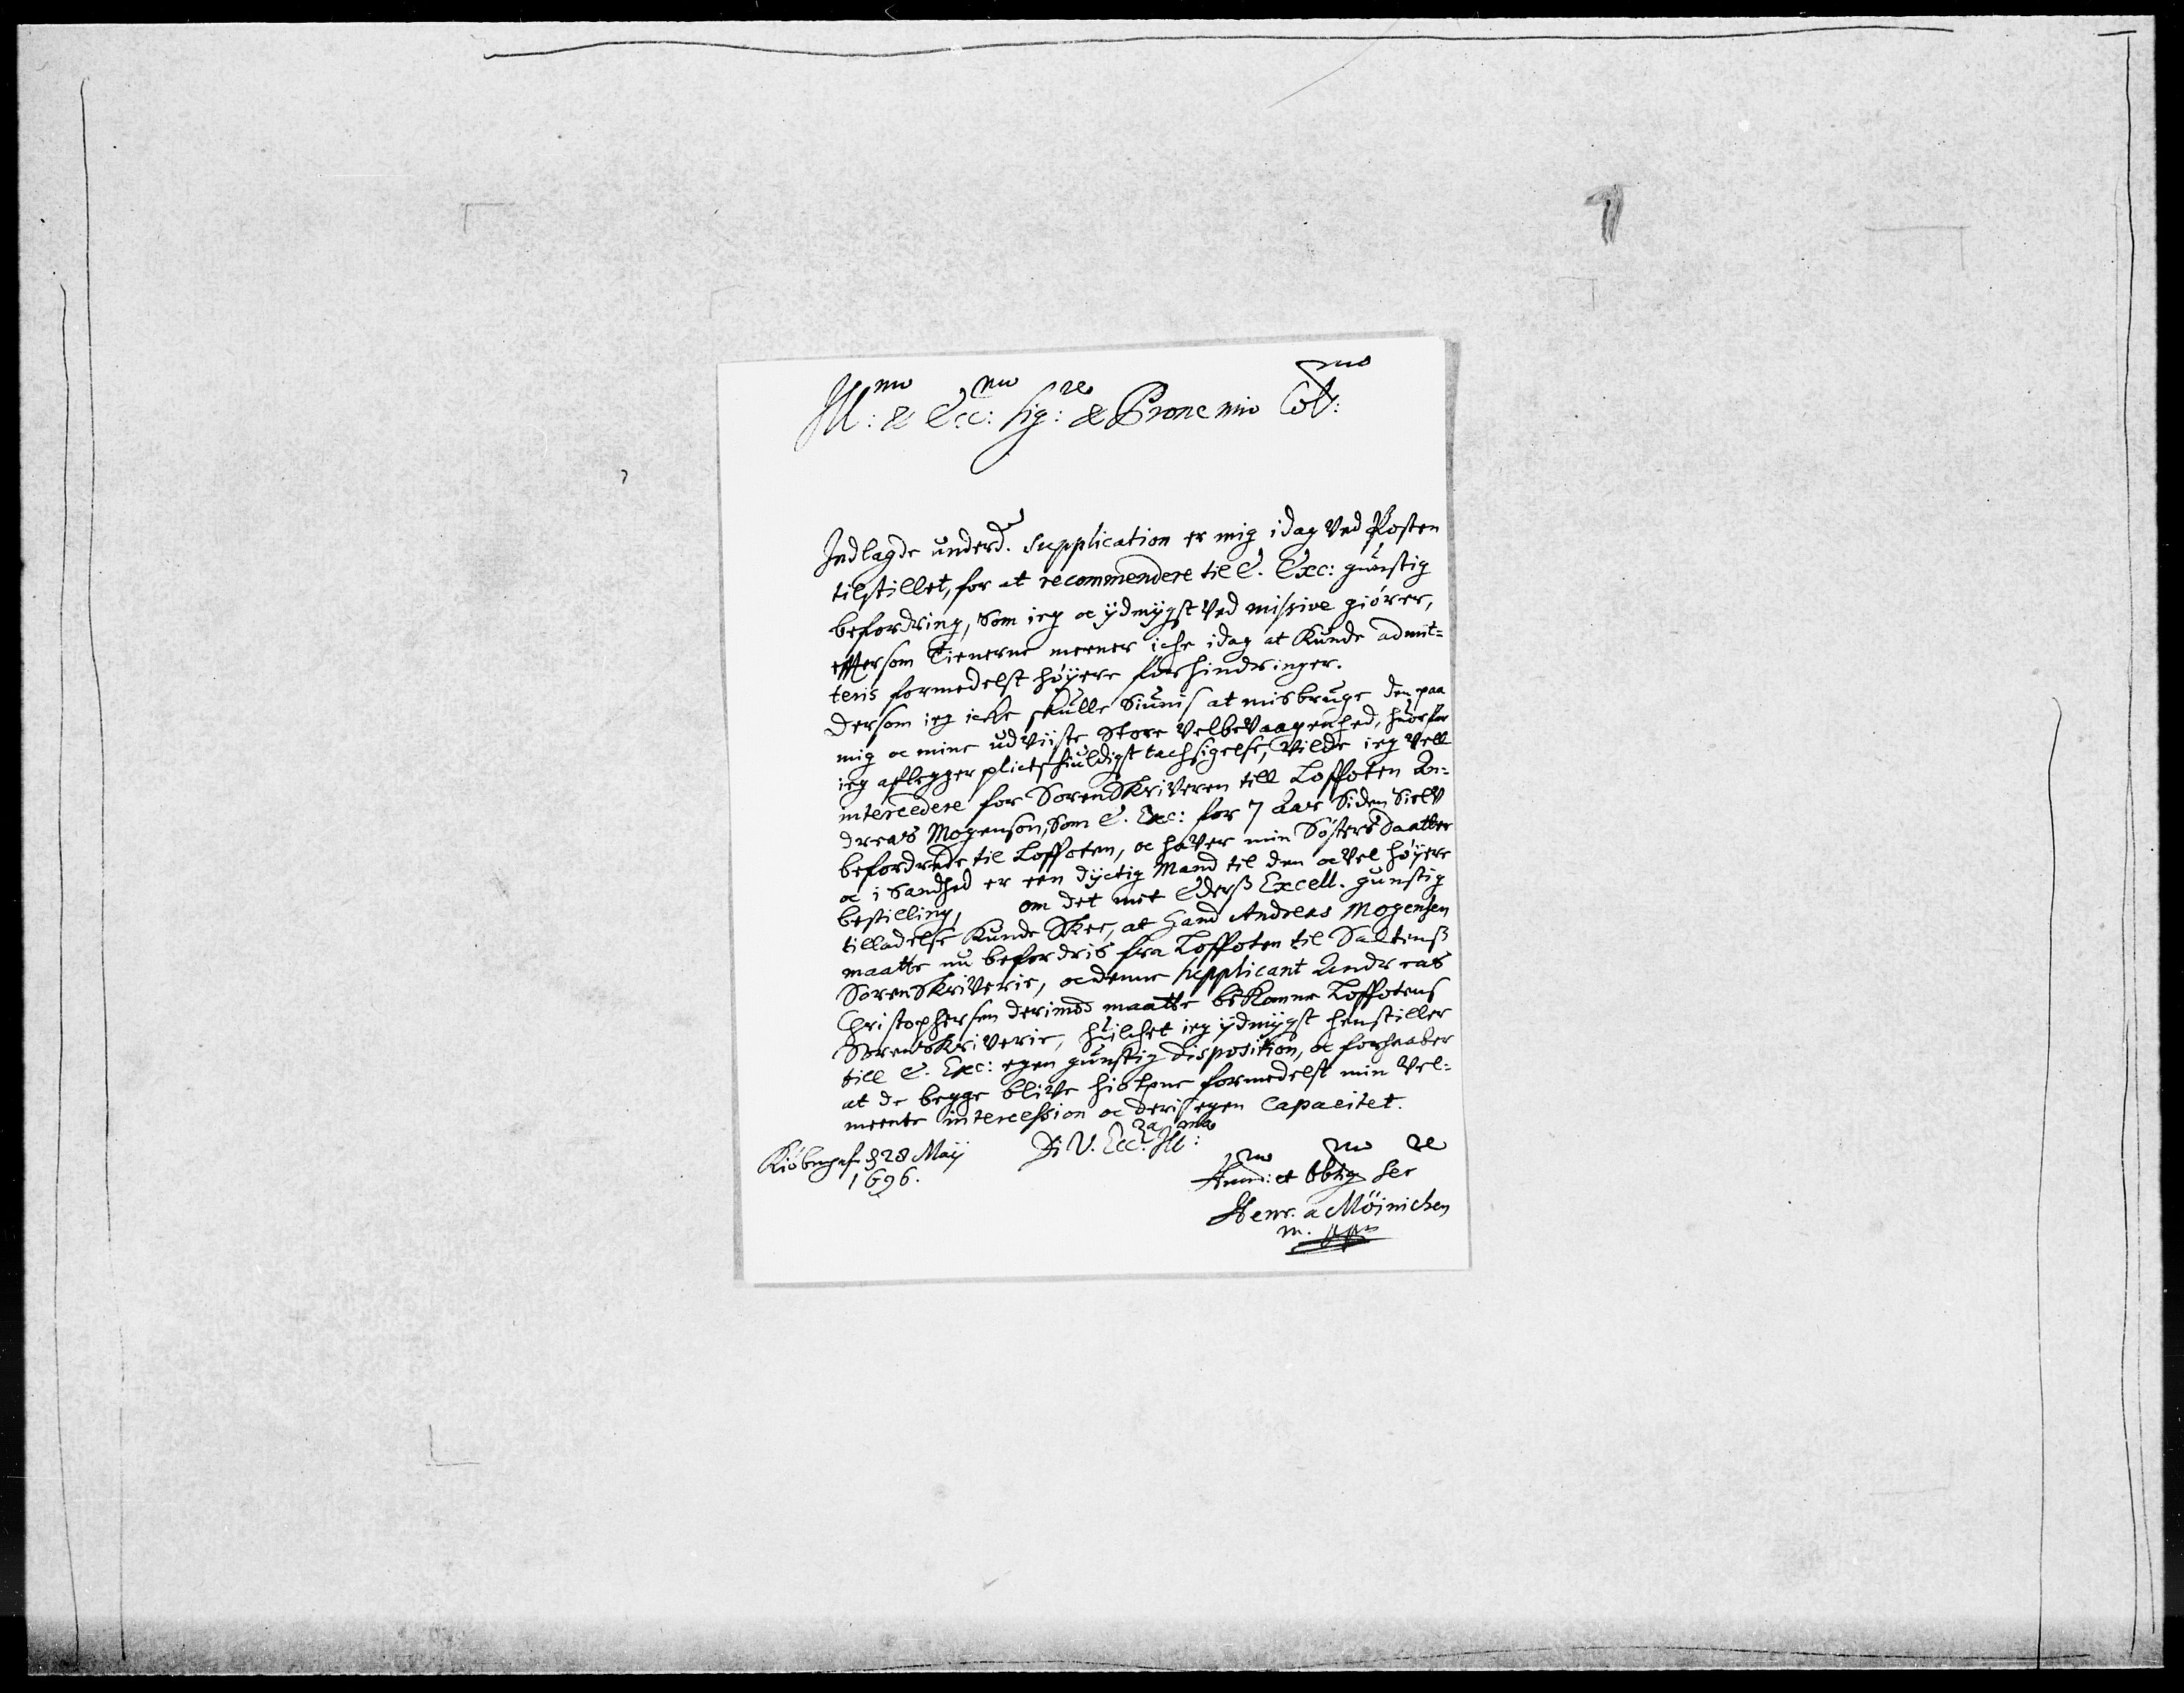 Ill:mo & Ecc:mo Sig:re & Prone mio Col:mo
Indlagde underd. Supplication er mig idag ved Posten
tilstillet, for at recommendere til E. Exc: gunstig
befordring, som ieg oc ydmygst ved missive giörer,
effter som Tienerne meener iche idag at kunde admit=
teris formedelst høyere forhindringer.
Dersom ieg icke skulle siunis at misbruge den paa
mig oc mine udviiste store velbevaagenhed, huorfor
ieg aflegger plictskiuldigst tachsigelse, vilde ieg vell
intercedere for Sorenskriveren till Loffoten An=
dreas Mogenson, som E. Exc: for 7 Aar siden sielv
befordrede til Loffoten, oc haver min Søsters Daatter
oc i sandhed er een dyctig Mand til den oc vel høyere
bestilling, om det met Ederß Excell. gunstig
tilladelse kunde skee, at hand Andreas Mogensen
maatte nu befordris fra Loffoten til Saltenß
Sorenskriverie, oc denne supplicant Andreas
Christophersen derimod maatte bekomme Loffotens
Sorenskriverie, huilchet ieg ydmygst henstiller
till E. Exc: egen gunstig disposition, oc forhaaber
at de begge blive hiolpne formedelst min vel=
meente intercession oc deris egen Capacitet.
Kiöbenhafn d 28 Maij
1696.
Di V. Ecc:za Ill:ma
Hum:mo et Obblig:mo Ser:re
Henr. a Möinichen
m. ppa